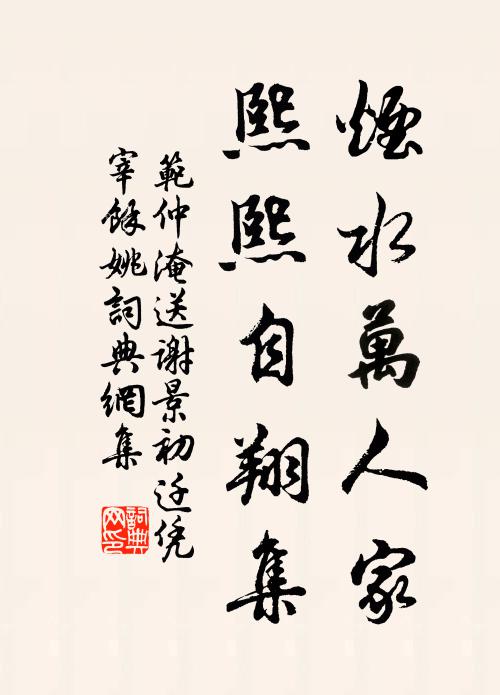 煙水萬人家
熙熙自翔集
範仲淹送謝景初迁凭
宰餘姚詞典網集
詞典
网印